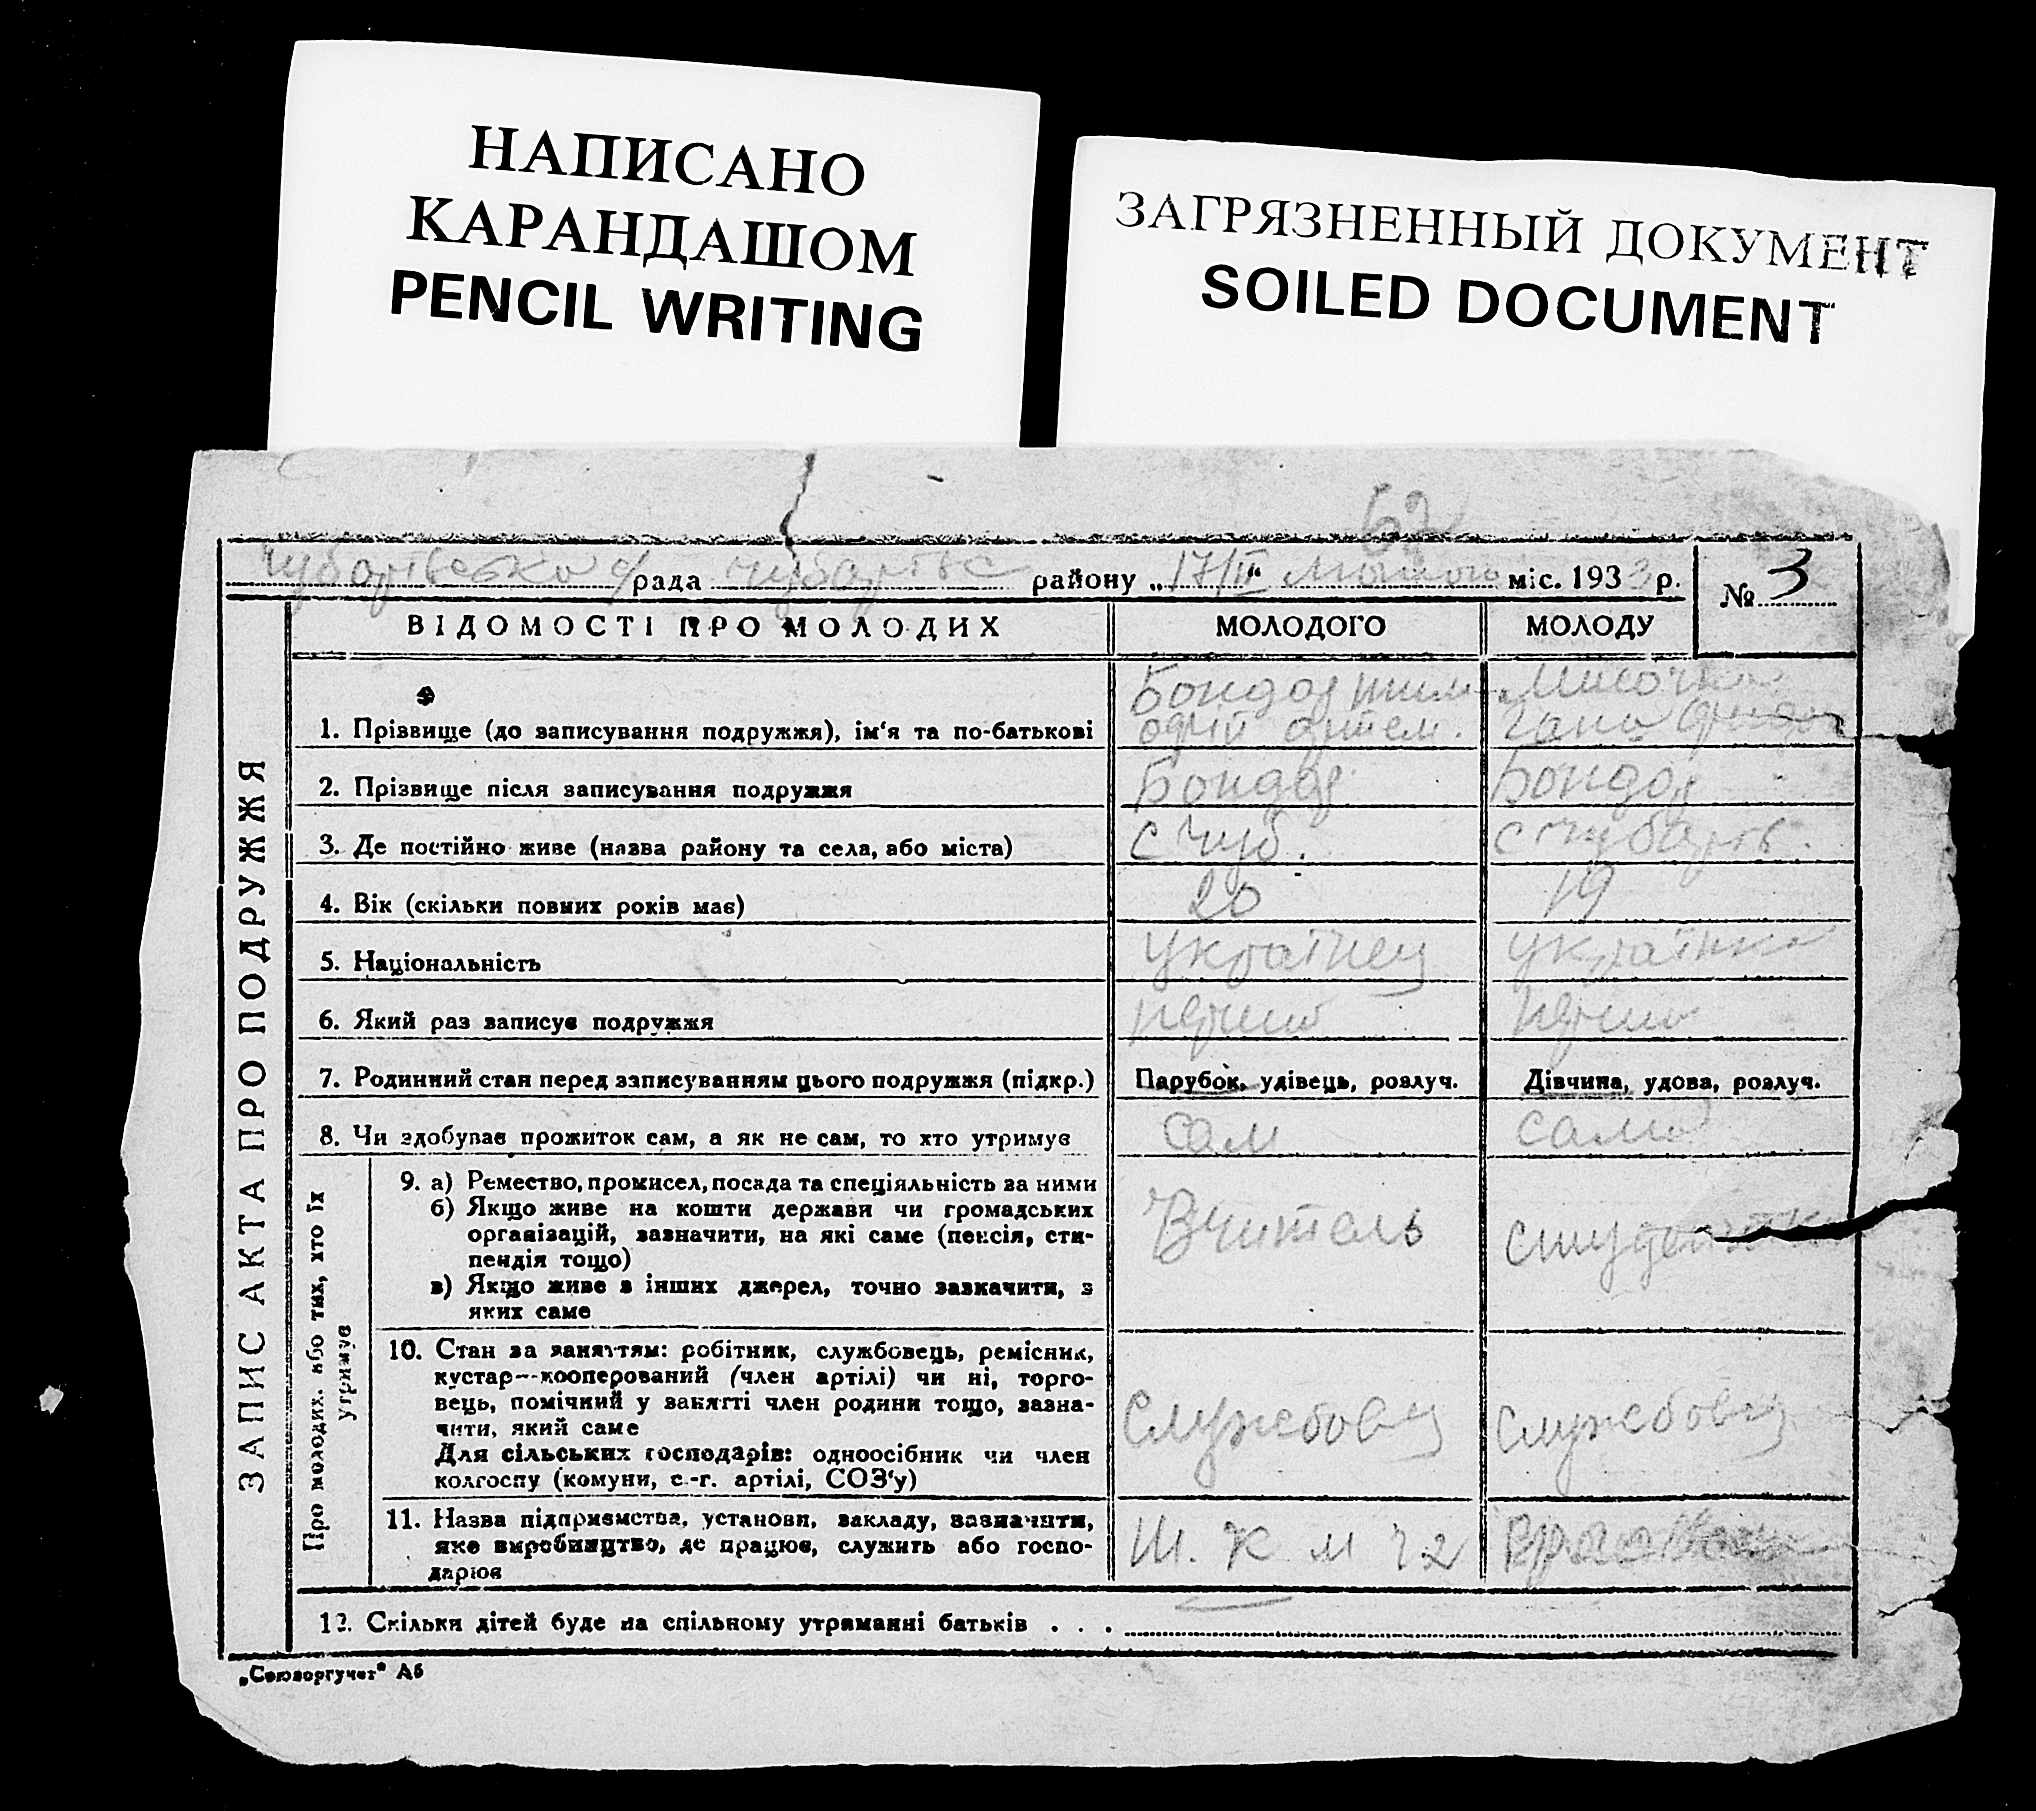 НАПИСАНО
КАРАНДАШОМ
PENCIL WRITING
ЗАГРЯЗНЕННЫЙ ДОКУМЕНТ
SOILED DOCUMENT
62
с/рада району „17/II“ міс. 1933 р.
№ 3
ЗАПИС АКТА ПРО ПОДРУЖЖЯ
ВІДОМОСТІ ПРО МОЛОДИХ МОЛОДОГО МОЛОДУ
Бондар Тим
1. Прізвище (до записування подружжя), ім'я та по-батькові
2. Прізвище після записування подружжя Бондар Бондар
3. Де постійно живе (назва району та села, або міста) с Чуб. с Чубарів.
4. Вік (скільки повних років має) 20 19
5. Національність українец українка
6. Який раз записує подружжя перший перший
7. Родинний стан перед записуванням цього подружжя (підкр.) Парубок, удівець, розлуч. Дівчина, удова, розлуч.
8. Чи здобуває прожиток сам, а як не сам, то хто утримує сам сама
Про молодих, або тих, хто їх
утримує
9. а) Ремество, промисел, посада та спеціяльність за ними
б) Якщо живе на кошти держави чи громадських
організацій, зазначити, на які саме (пенсія, сти-
пендія тощо)
в) Якщо живе з інших джерел, точно зазначити, з
яких саме
Вчитель студентка
10. Стан за заняттям: робітник, службовець, ремісник,
кустар—кооперований (член артілі) чи ні, торго-
вець, помічний у занятті член родини тощо, зазна-
чити, який саме
Для сільських господарів: одноосібник чи член
колгоспу (комуни, с.-г. артілі, СОЗ'у)
Службовц Службовц
11. Назва підприємства, установи, закладу, зазначити,
яке виробництво, де працює, служить або госпо-
дарює
Ш. К М Ч 2
12. Скільки дітей буде на спільному утриманні батьків . . .
„Союзоргучет" А6